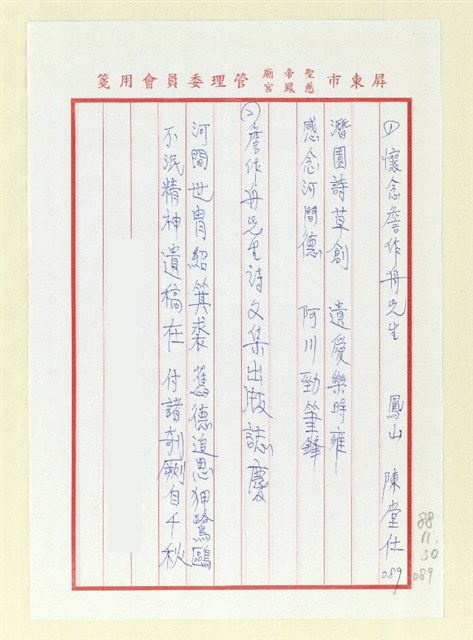 屏東市聖帝廟慈鳳宮管理委員會用箋
① 懷念詹作舟先生 鳳山 陳堂仕 089
潛園詩草創 遺愛樂時雍
感念河間德 阿川勁筆鋒
② 詹作舟先生詩文集出版誌慶
河間世胄紹箕裘 舊德追思狎鷺鷗
不泯精神遺稿在 付諸剞劂自千秋
88
11.
30
089